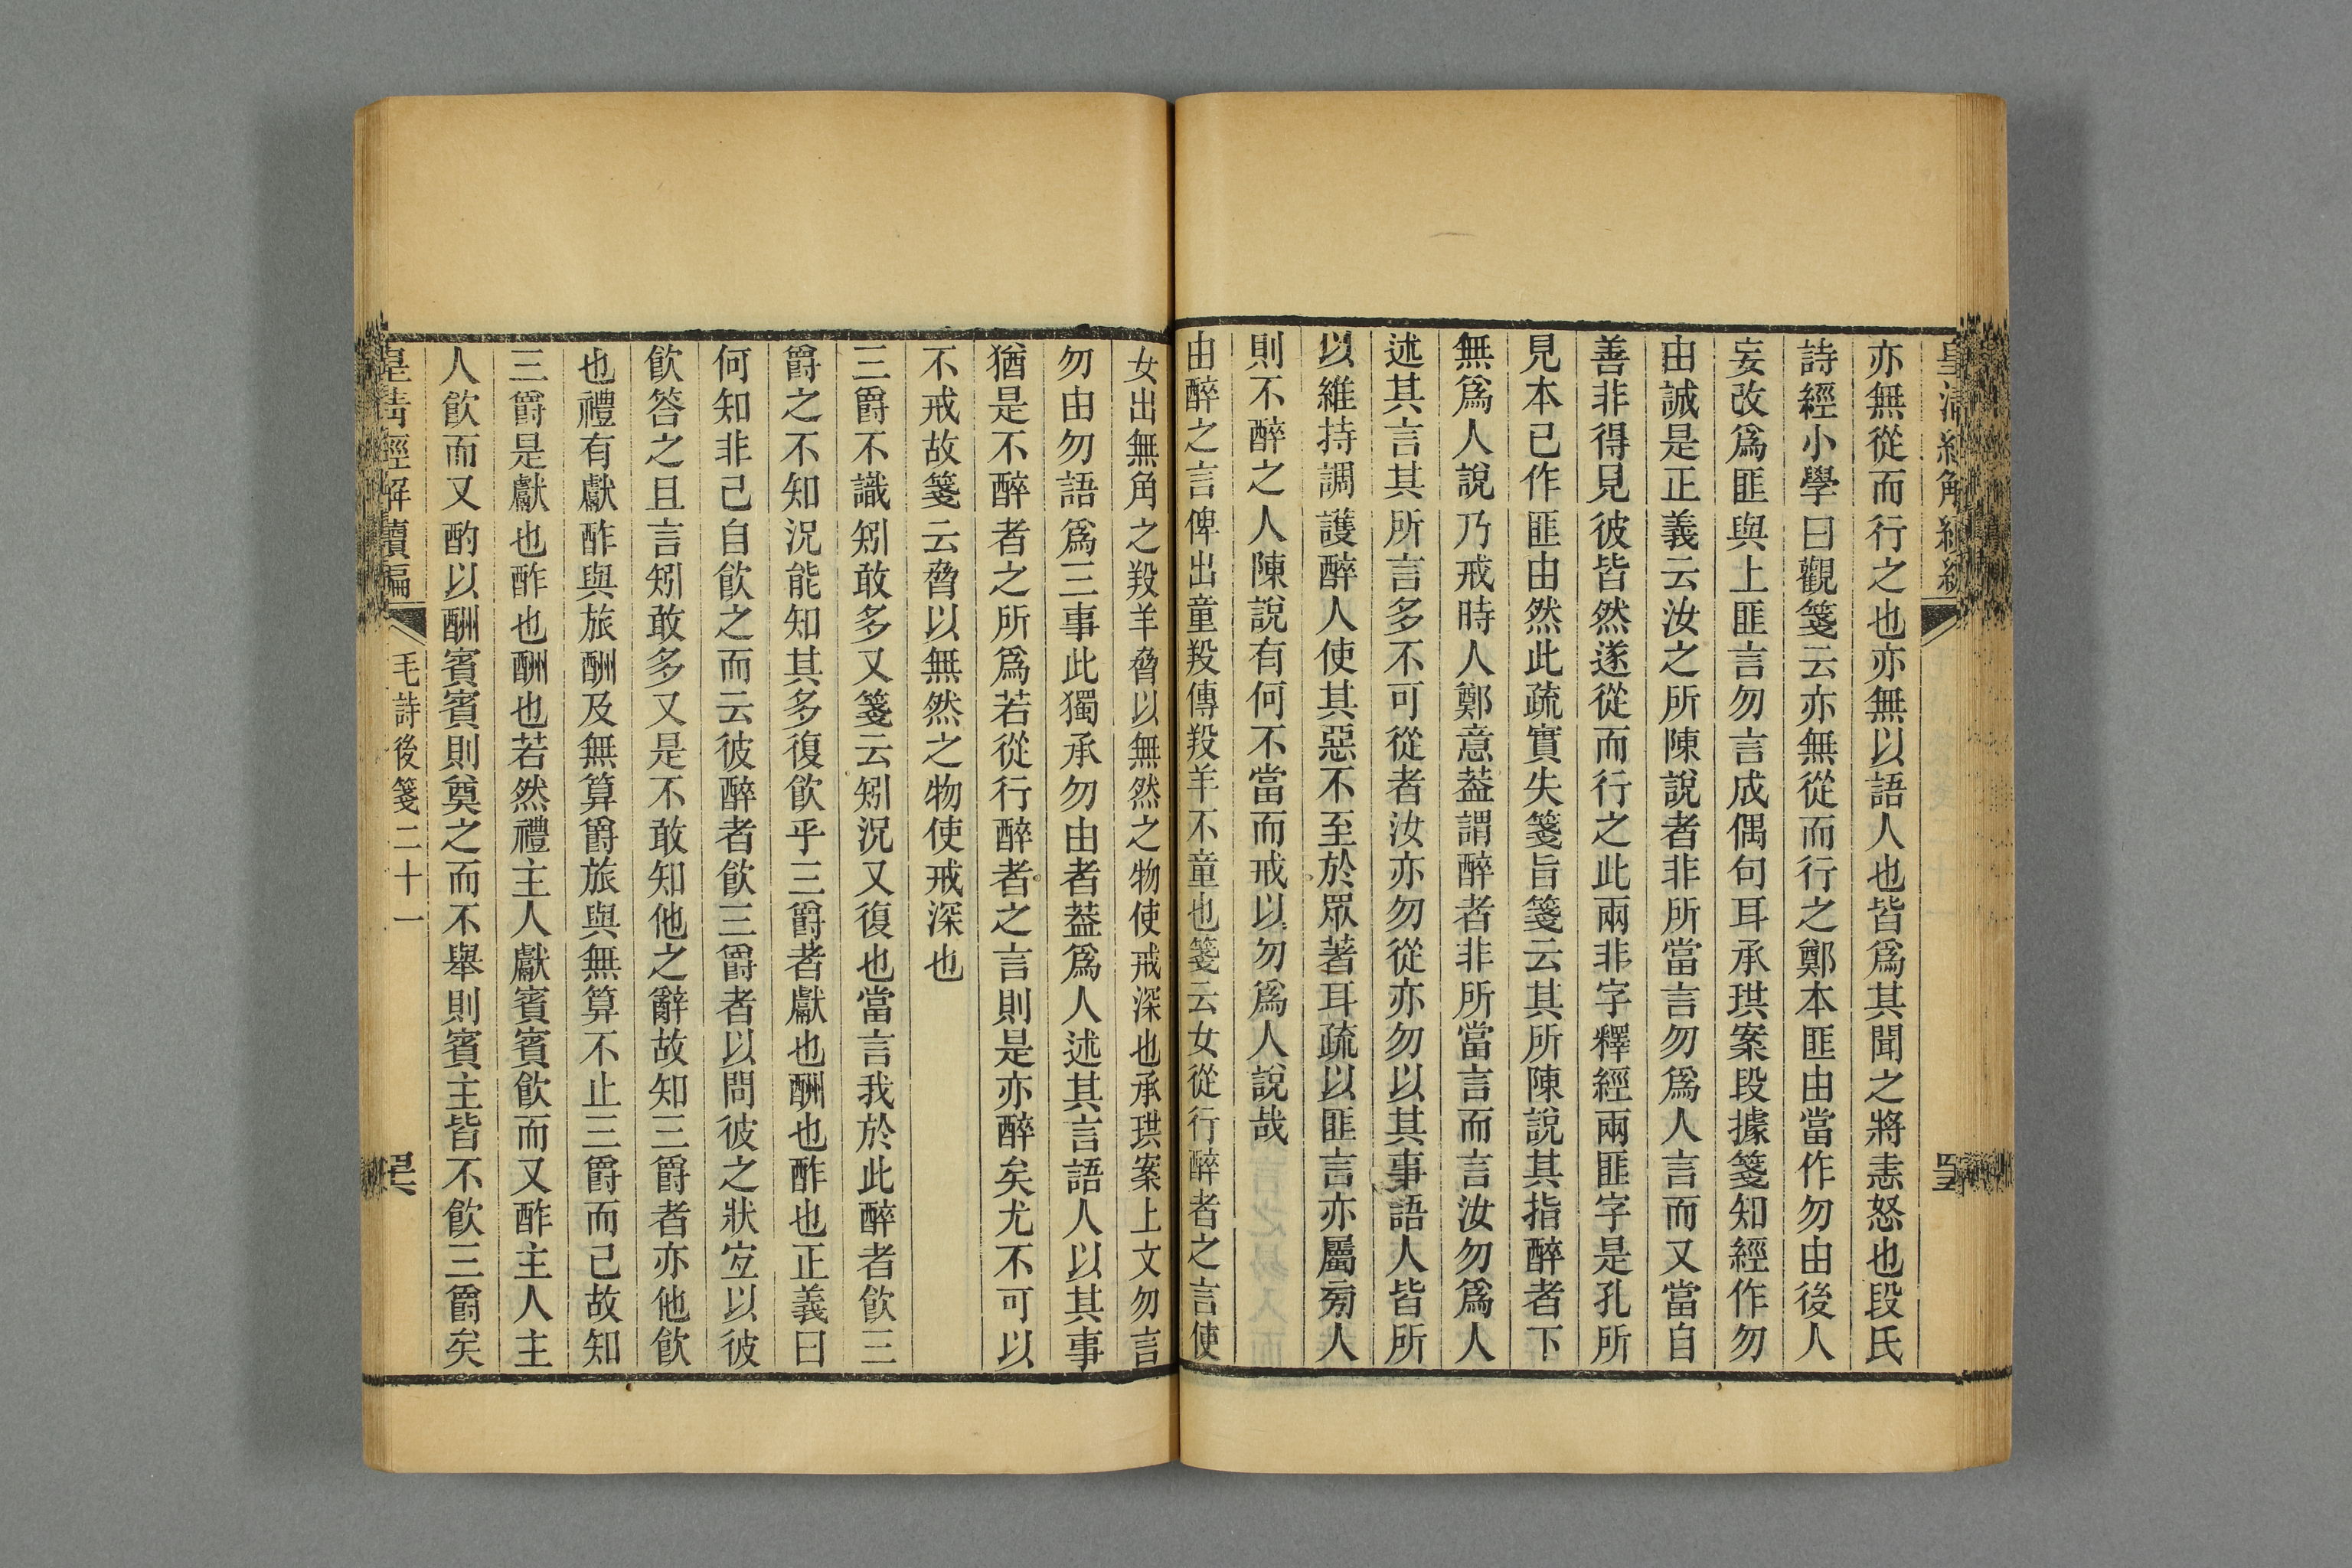 亦無從而行之也亦無以語人也皆爲其聞之將恚怒也段氏
詩經小學曰觀箋云亦無從而行之鄭本匪由當作勿由後人
妄改爲匪與上匪言勿言成偶句耳承珙案段據箋知經作勿
由誠是正義云汝之所陳說者非所當言勿爲人言而又當自
善非得見彼皆然遂從而行之此兩非字釋經兩匪字是孔所
見本已作匪由然此疏實失箋旨箋云其所陳說其指醉者下
無爲人說乃戒時人鄭意葢謂醉者非所當言而言汝勿爲人
述其言其所言多不可從者汝亦勿從亦勿以其事語人皆所
以維持調護醉人使其惡不至於眾著耳疏以匪言亦屬旁人
則不醉之人陳說有何不當而戒以勿爲人說哉
由醉之言俾出童羖傳羖羊不童也箋云女從行醉者之言使
女出無角之羖羊脅以無然之物使戒深也承珙案上文勿言
勿由勿語爲三事此獨承勿由者葢爲人述其言語人以其事
猶是不醉者之所爲若從行醉者之言則是亦醉矣尤不可以
不戒故箋云脅以無然之物使戒深也
三爵不識矧敢多又箋云矧況又復也當言我於此醉者飮三
爵之不知況能知其多復飮乎三爵者獻也酬也酢也正義曰
何知非己自飮之而云彼醉者飮三爵者以問彼之狀宐以彼
飮答之且言矧敢多又是不敢知他之辭故知三爵者亦他飮
也禮有獻酢與旅酬及無算爵旅與無算不止三爵而已故知
三爵是獻也酢也酬也若然禮主人獻賓賓飮而又酢主人主
人飮而又酌以酬賓賓則奠之而不舉則賓主皆不飮三爵矣
皇淸經解續編
毛詩後箋二十一